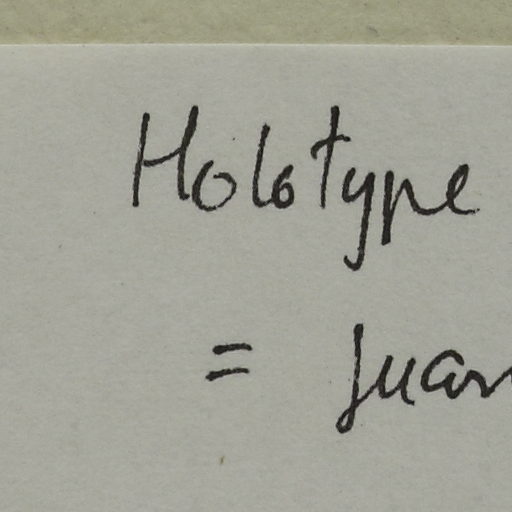 Holotype
= Juan